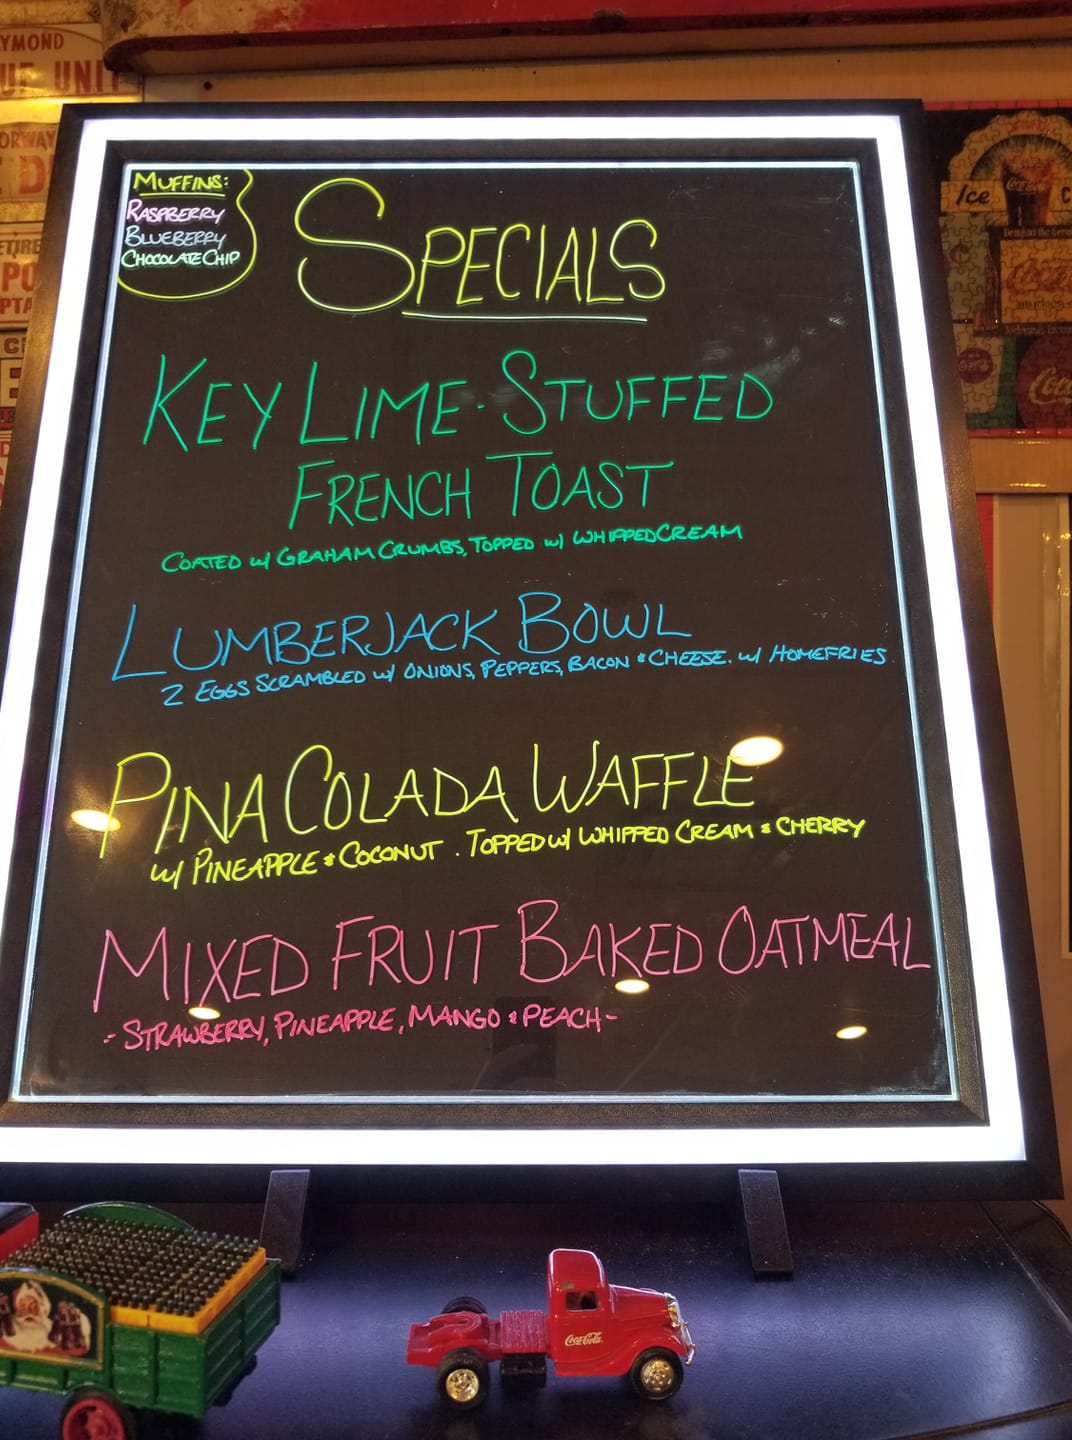 YMOND
UF UNIT
ORWAY
MUFFINS:
RASPBERRY
BLUEBERRY
CHOCOLATE CHIP
SPECIALS
KEY LIME-STUFFED
FRENCH TOAST
COATED W/ GRAHAM CRUMBS, TOPPED W/ WHIPPED CREAM
LUMBERJACK BOWL
2 EGGS SCRAMBLED W/ ONIONS, PEPPERS, BACON & CHEESE. W/ HOMEFRIES
PINA COLADA WAFFLE
W/ PINEAPPLE & COCONUT. TOPPED W/ WHIPPED CREAM & CHERRY
MIXED FRUIT BAKED OATMEAL
- STRAWBERRY, PINEAPPLE, MANGO & PEACH -
Ice
Coca-Cola
Coca-Cola
Coca-Cola